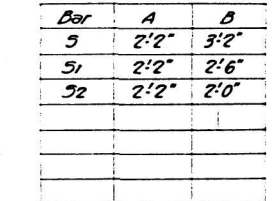 Bar A B
S 2'-2" 3'-2"
S1 2'-2" 2'-6"
S2 2'-2" 2'-0"